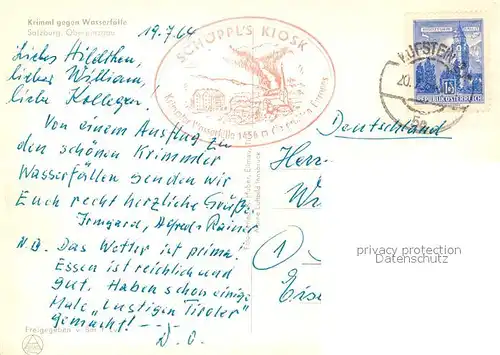 Krimml gegen Wasserfälle
Salzburg, Oberpinzgau
19.7.64
SCHÖPPL'S KIOSK
Krimmler Wasserfälle 1456 m
KUFSTEIN
20.
REPUBLIK ÖSTERREICH
Liebes Hildchen,
lieber William,
liebe Kollegen!
Von einem Ausflug zu
den schönen Krimmler
Wasserfällen senden wir
Euch recht herzliche Grüße
Irmgard, Alfred, Rainer
N.B. Das Wetter ist prima!
Essen ist reichlich und
gut. Haben schon einige
Male "Lustigen Tiroler"
gemacht! --
D.O.
Freigegeben v.
Deutschland
Herr
1
privacy protection
Datenschutz